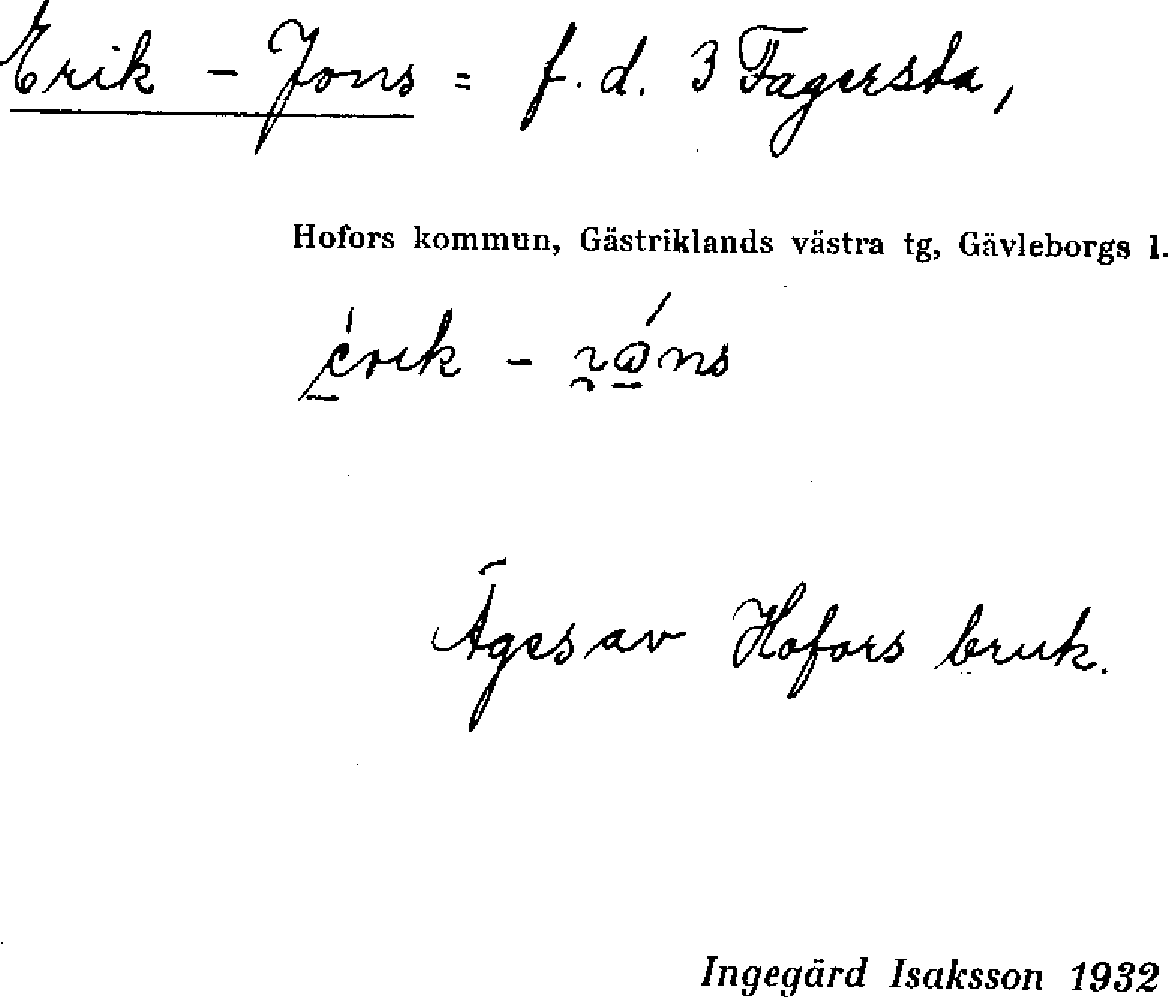 Erik - Jons = f.d. 3 Fagersta,
Hofors kommun, Gästriklands västra tg, Gävleborgs l.
Äges av Hofors bruk.
Ingegärd Isaksson 1932